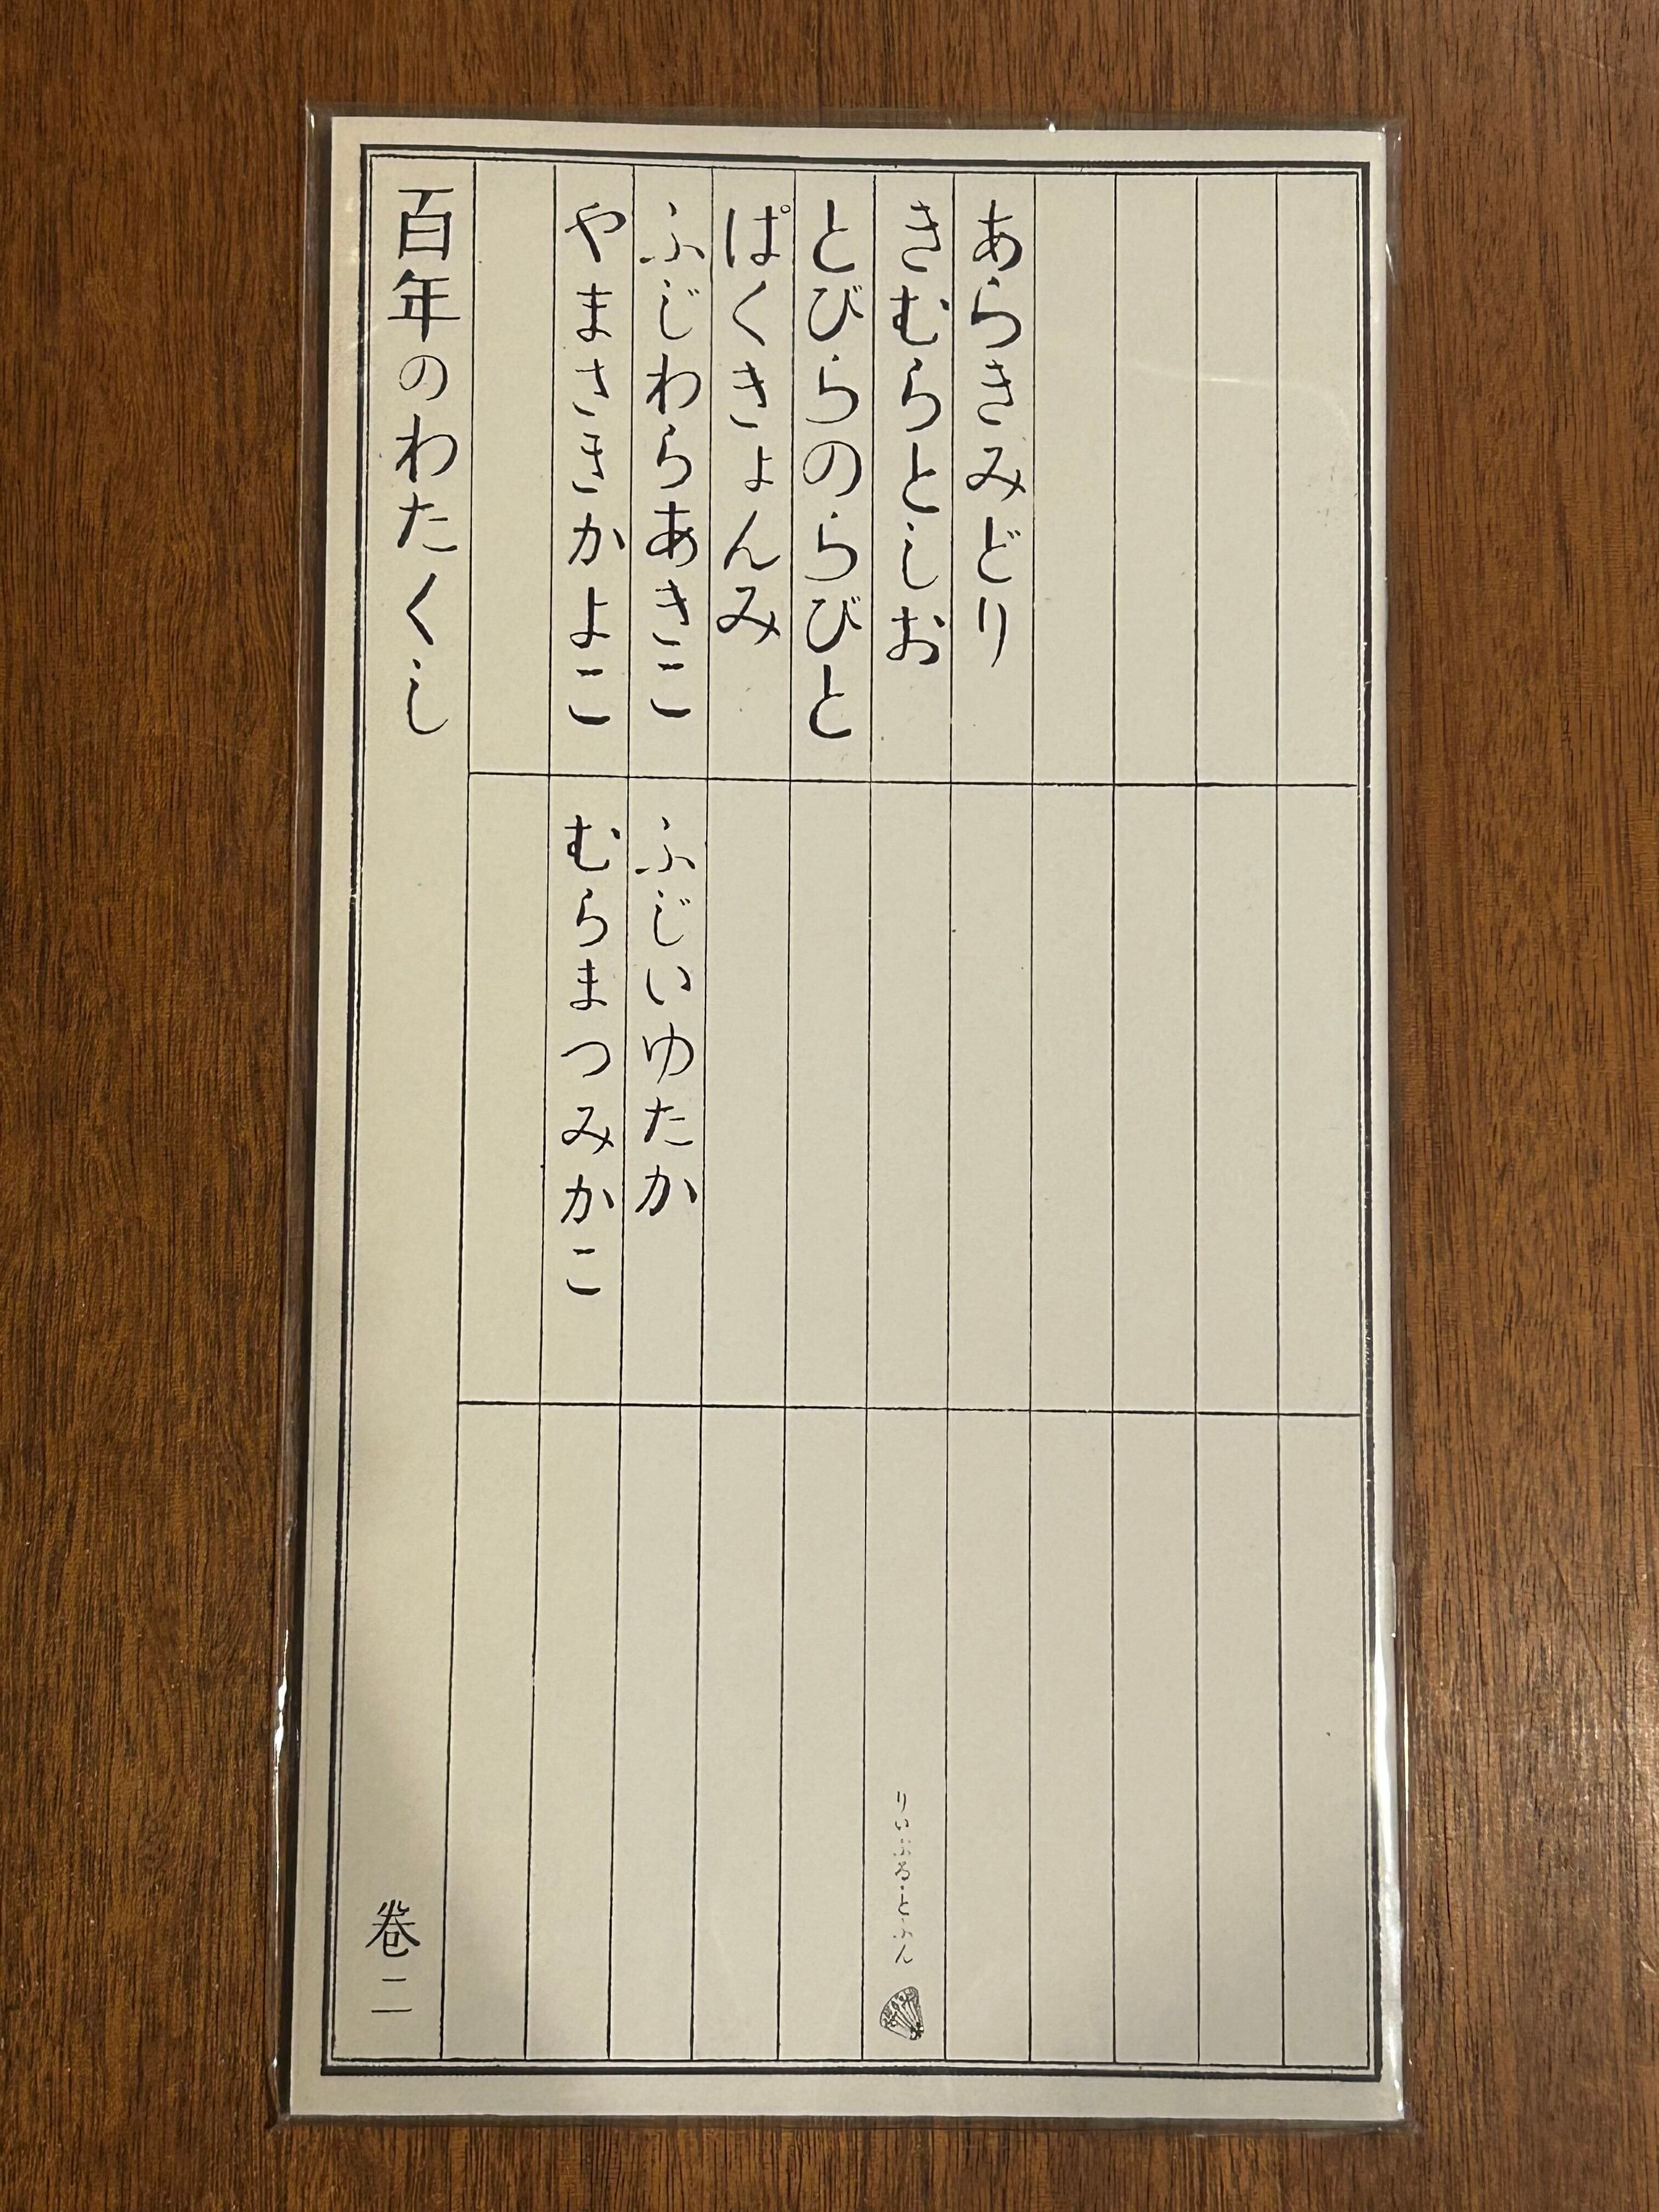 あらきみどり
きむらとしお
とびらのらびと
ぱくきょんみ
ふじわらあきこ
ふじいゆたか
やまさきかよこ
むらまつみかこ
百年のわたくし
巻二
りいぶる・とふん